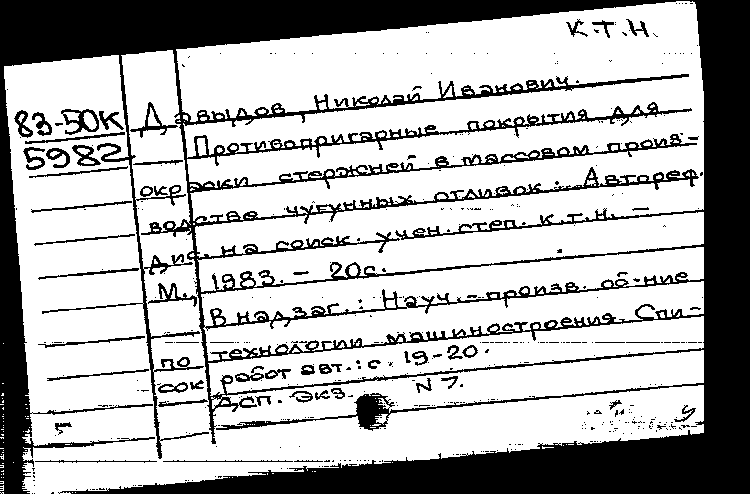 К.Т.Н.
83-50К
5982
Давыдов, Николай Иванович.
Противопригарные покрытия для
окраски стержней в массовом произ-
водстве чугунных отливок: Автореф.
дис. на соиск. учен. степ. к.т.н. -
М., 1983. - 20с.
В надзаг.: Науч.-произв. об-ние
по технологии машиностроения. Спи-
сок работ авт.: с. 19-20.
Дсп. экз. N 7.